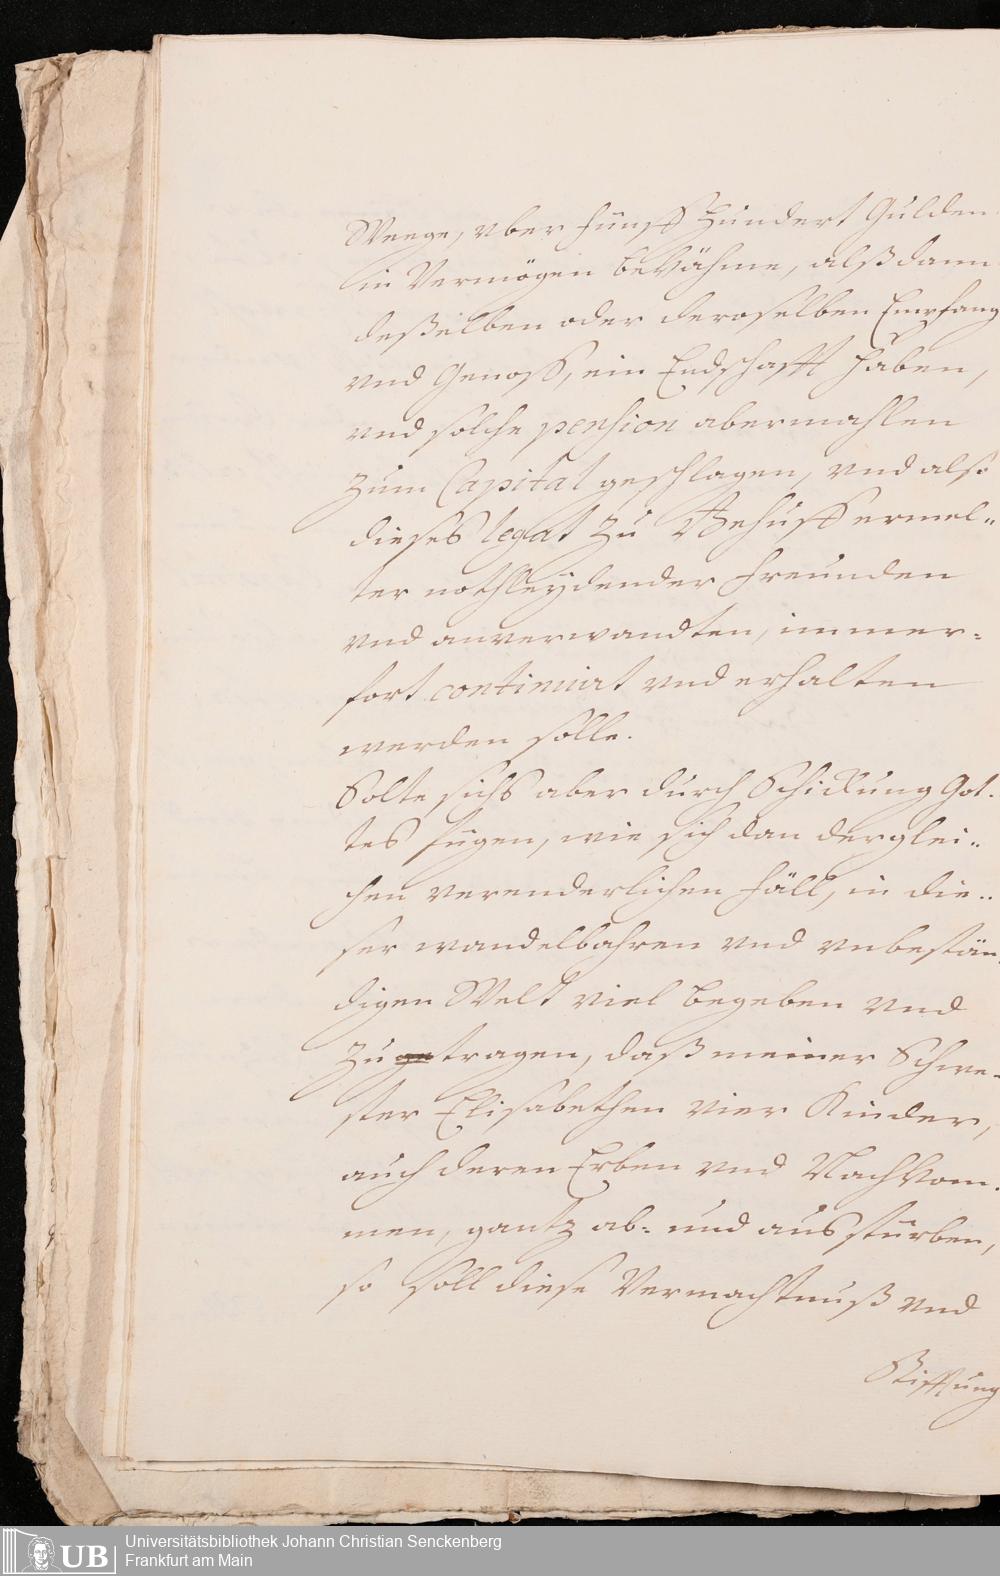 Weege, vber fünff Hundert Gulden
in Vermögen bekähme, alßdann
deßelben oder deroselben Empfang
vnd Genoß, ein Endschafft haben,
vnd solche pension abermahlen
zum Capital geschlagen, vnd also
dieses legat zu Behuff ermel„
ter nothleydender Freunden
vnd anverwandten, immer=
fort continuirt vnd erhalten
werden solle.
Solte sichs aber durch Schickung Got.
tes fügen, wie sich dan derglei„
chen verenderlichen fäll, in die„
ser wandelbahren vnd vnbestän„
digen Welt viel begeben vnd
zu getragen, daß meiner Schwe„
ster Elisabethen vier Kinder,
auch deren Erben vnd Nachkom.
men, gantz ab= und ausstürben,
so soll diese Vermachtnuß vnd
Stifftung
Universitätsbibliothek Johann Christian Senckenberg
Frankfurt am Main
UB